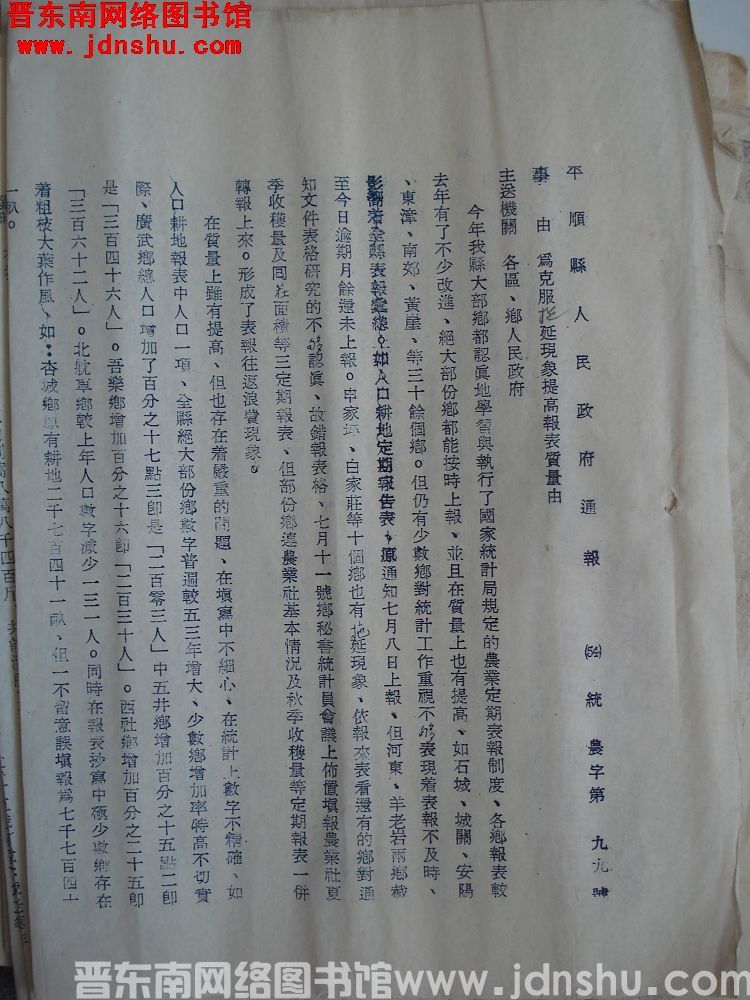 晋东南网络图书馆
www.jdnshu.com
平順縣人民政府通報 (54)統農字第九九號
事由 為克服拖延現象提高報表質量由
主送機關 各區、鄉人民政府
今年我縣大部鄉都認眞地學習與執行了國家統計局規定的農業定期表報制度、各鄉報表較
去年有了不少改進、絕大部份鄉都能按時上報、並且在質量上也有提高、如石城、城關、安陽
、東漳、南郊、黃崖、等三十餘個鄉。但仍有少數鄉對統計工作重視不够表現着表報不及時、
影響着全縣表報彙總、如人口耕地定期報告表、原通知七月八日上報、但河東、羊老岩兩鄉截
至今日逾期月餘還未上報。申家坪、白家莊等十個鄉也有拖延現象、依報來表看還有的鄉對通
知文件表格研究的不够認眞、故錯報表格、七月十一號鄉秘書統計員會議上佈置填報農業社夏
季收穫量及回茬面積等三定期報表、但部份鄉連農業社基本情況及秋季收穫量等定期報表一併
轉報上來。形成了表報往返浪費現象。
在質量上雖有提高、但也存在着嚴重的問題、在填寫中不細心、在統計上數字不精確、如
人口耕地報表中人口一項、全縣絕大部份鄉數字普遍較五三年增大、少數鄉增加率特高不切實
際、廣武鄉總人口增加了百分之十七點三卽是「二百零三人」中五井鄉增加百分之十五點二卽
是「三百四十六人」。吾樂鄉增加百分之十六卽「二百三十人」。西社鄉增加百分之二十五卽
「三百六十二人」。北躭車鄉較上年人口數字減少一三一人。同時在報表抄寫中極少數鄉存在
着粗枝大葉作風、如：杏城鄉原有耕地二千七百四十一畝、但一不留意誤填報為七千七百四十
一畝。
萬八千四百斤
晋东南网络图书馆www.jdnshu.com